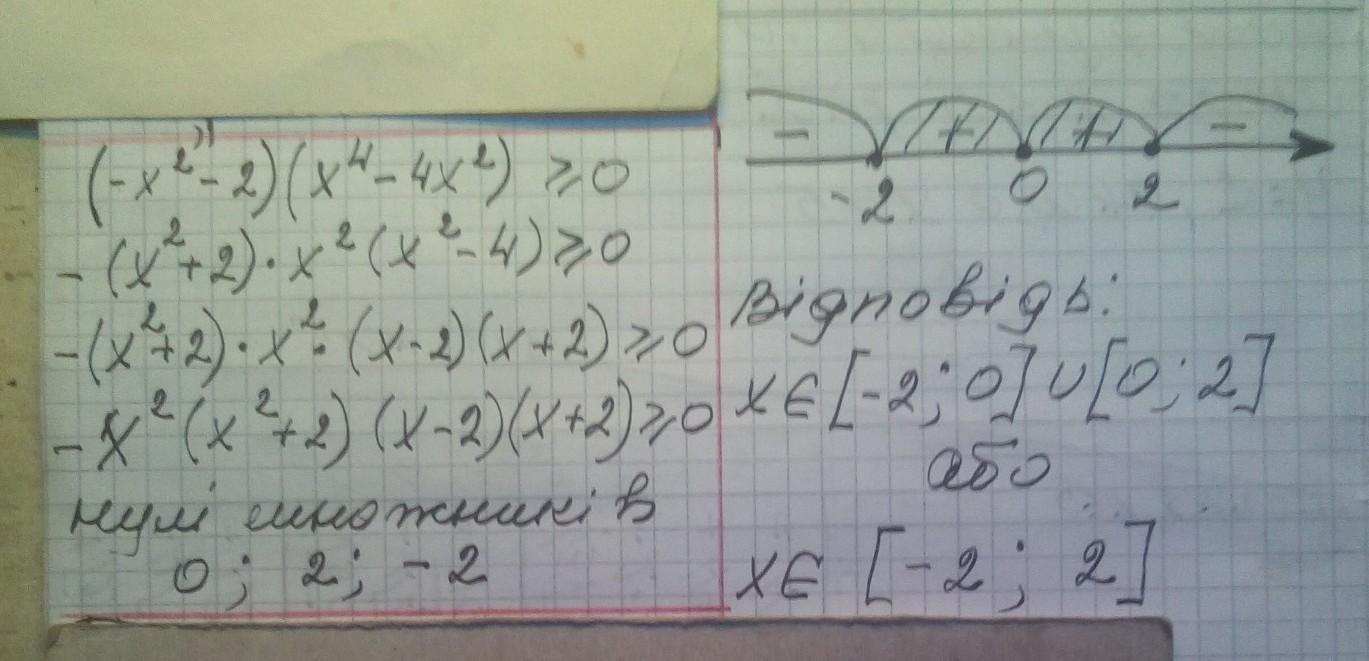 (-x²-2)(x⁴-4x²) ≥0
-(x²+2)·x²(x²-4)≥0
-(x²+2)·x²·(x-2)(x+2)≥0
-x²(x²+2)(x-2)(x+2)≥0
нулі множників
0; 2; -2
- + + -
-2 0 2
Відповідь:
x∈[-2; 0]∪[0; 2]
або
x∈ [-2; 2]